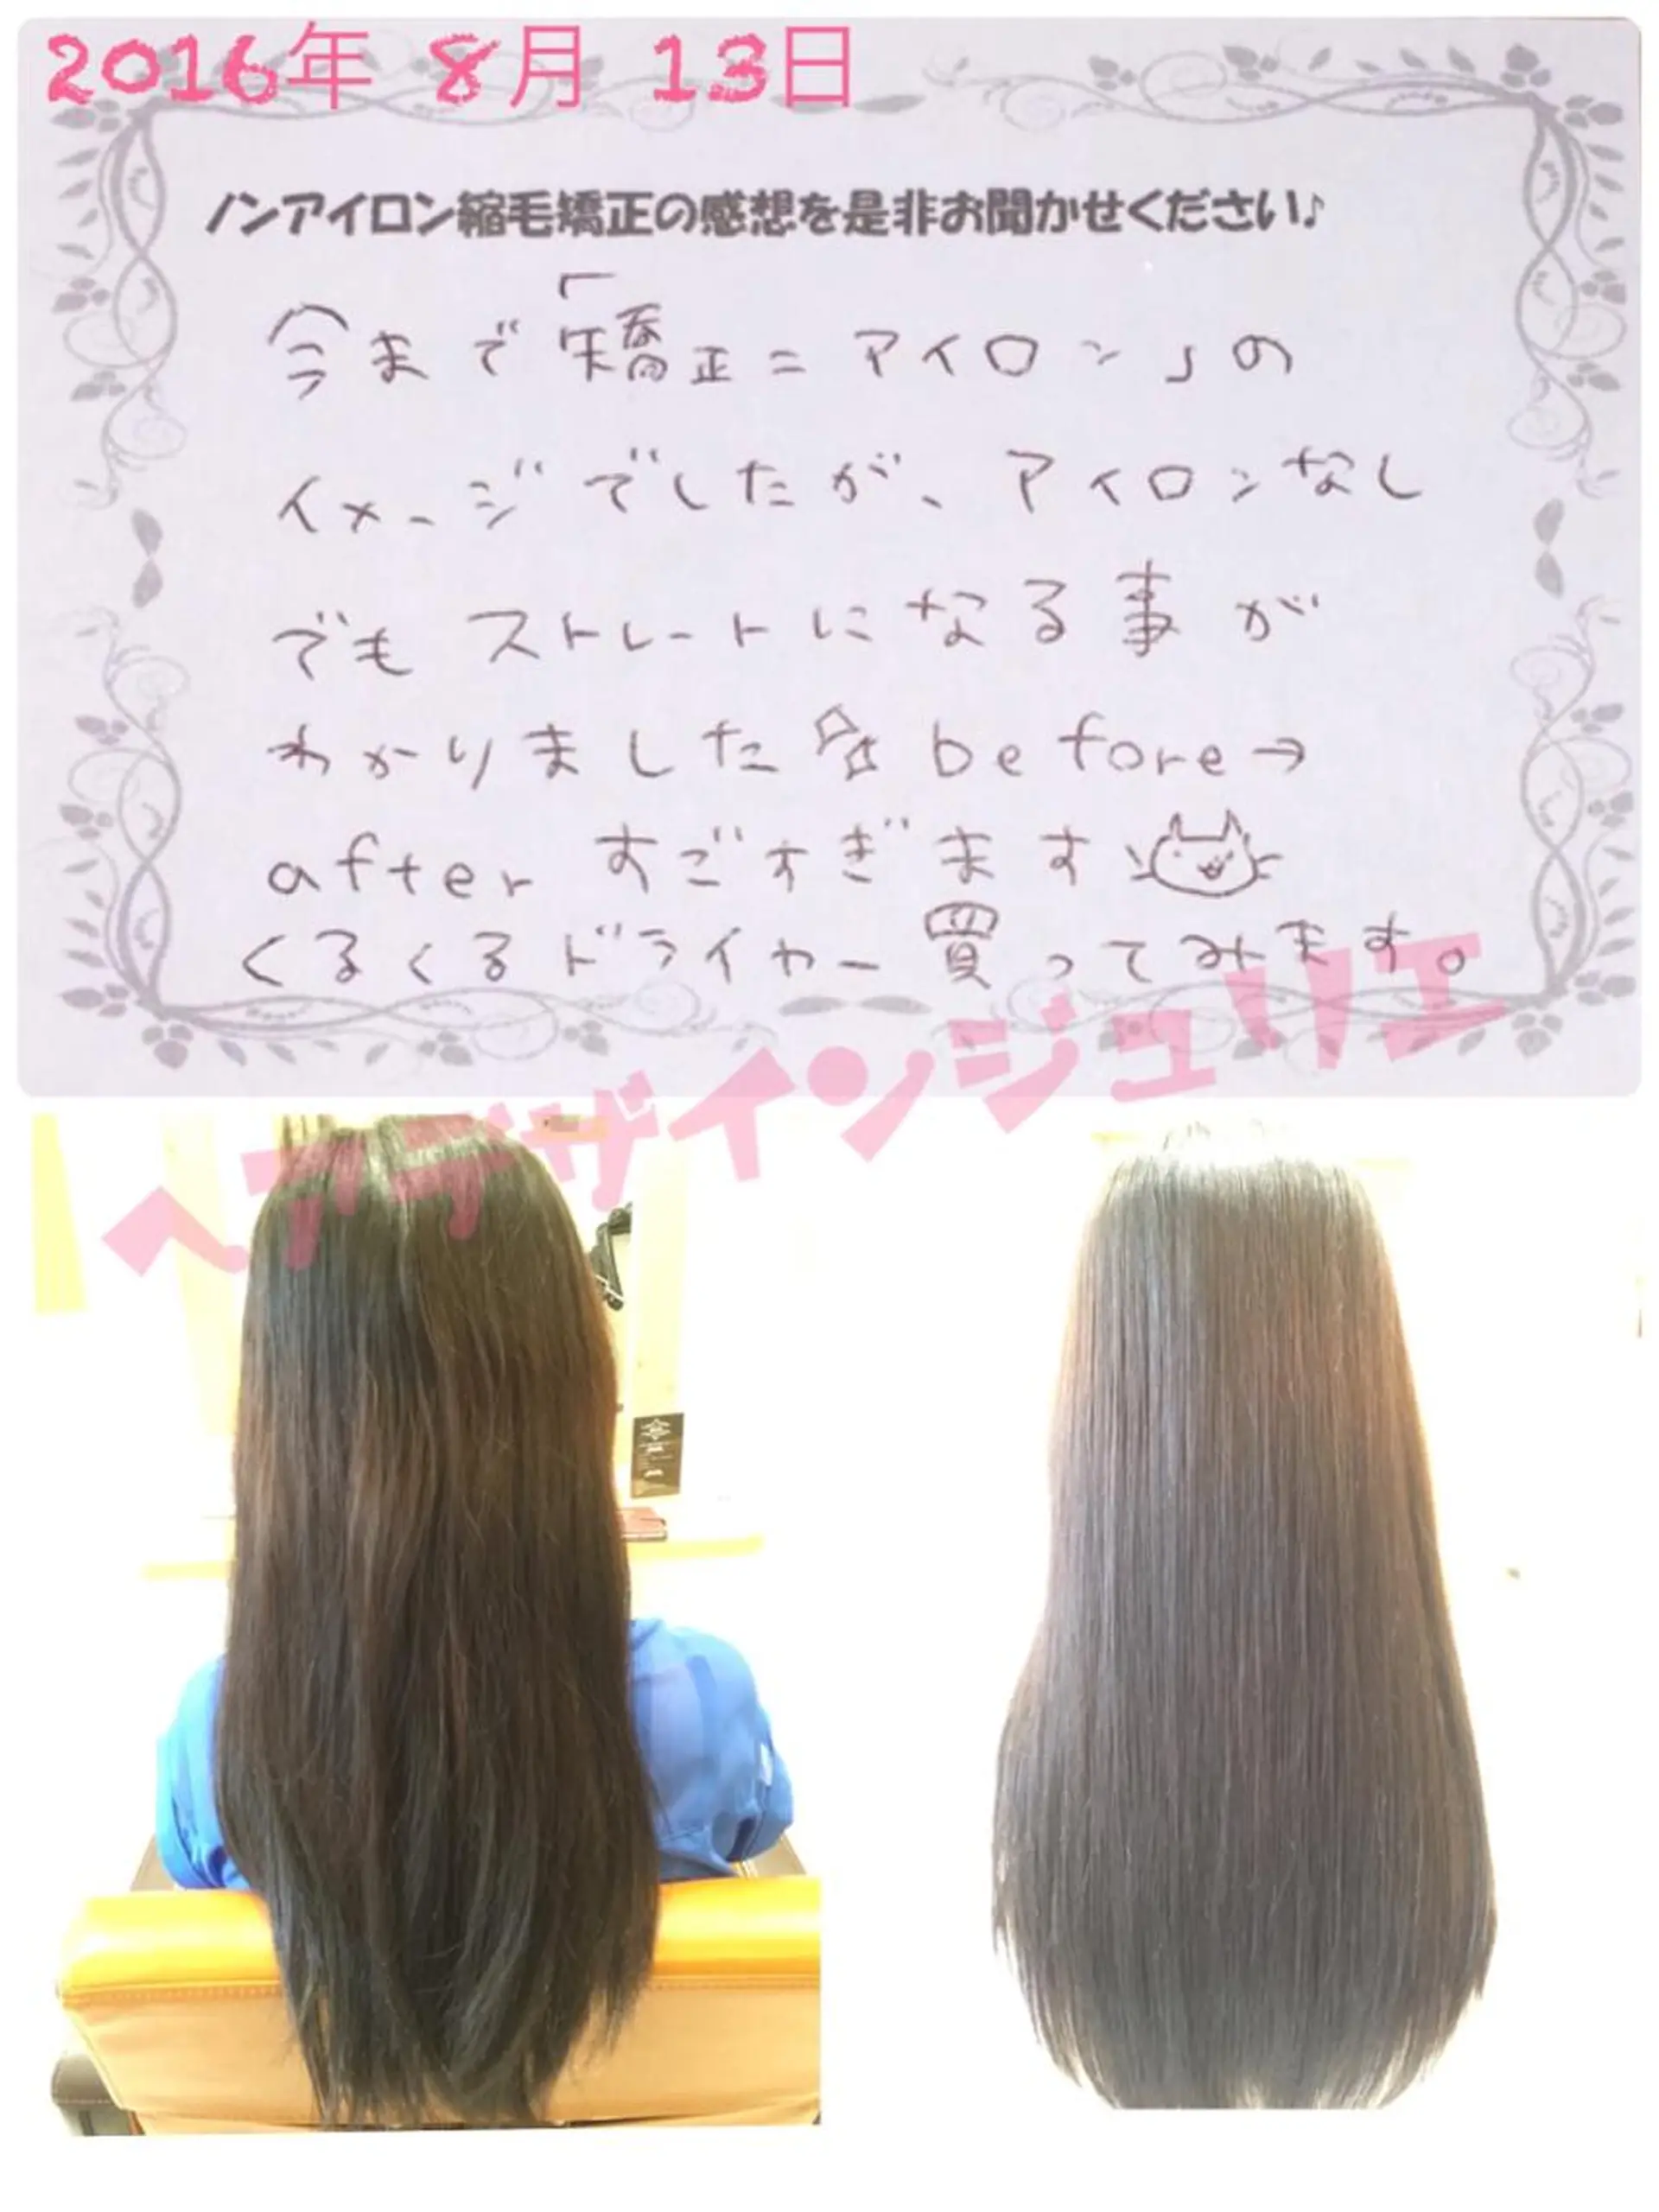 2016年 8月 13日
ノンアイロン縮毛矯正の感想を是非お聞かせください♪
今まで「矯正＝アイロン」の
イメージでしたが、アイロンなし
でもストレートになる事が
わかりました☆☆ before→
after すごすぎます
くるくるドライヤー買ってみます。
ヘアデザインジュリエ